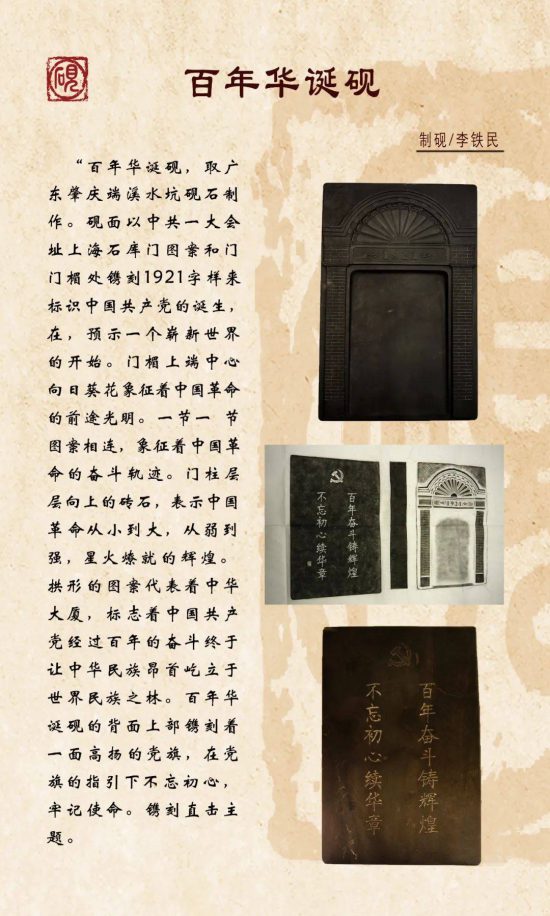 砚
百年华诞砚
制砚/李铁民
“百年华诞砚，取广
东肇庆端溪水坑砚石制
作。砚面以中共一大会
址上海石库门图案和门
门楣处镌刻1921字样来
标识中国共产党的诞生，
在，预示一个崭新世界
的开始。门楣上端中心
向日葵花象征着中国革命
的前途光明。一节一 节
图案相连，象征着中国革
命的奋斗轨迹。门柱层
层向上的砖石，表示中国
革命从小到大，从弱到
强，星火燎就的辉煌。
拱形的图案代表着中华
大厦，标志着中国共产
党经过百年的奋斗终于
让中华民族昂首屹立于
世界民族之林。百年华
诞砚的背面上部镌刻着
一面高扬的党旗，在党
旗的指引下不忘初心，
牢记使命。镌刻直击主
题。
1921
百年奋斗铸辉煌
不忘初心续华章
1921
百年奋斗铸辉煌
不忘初心续华章